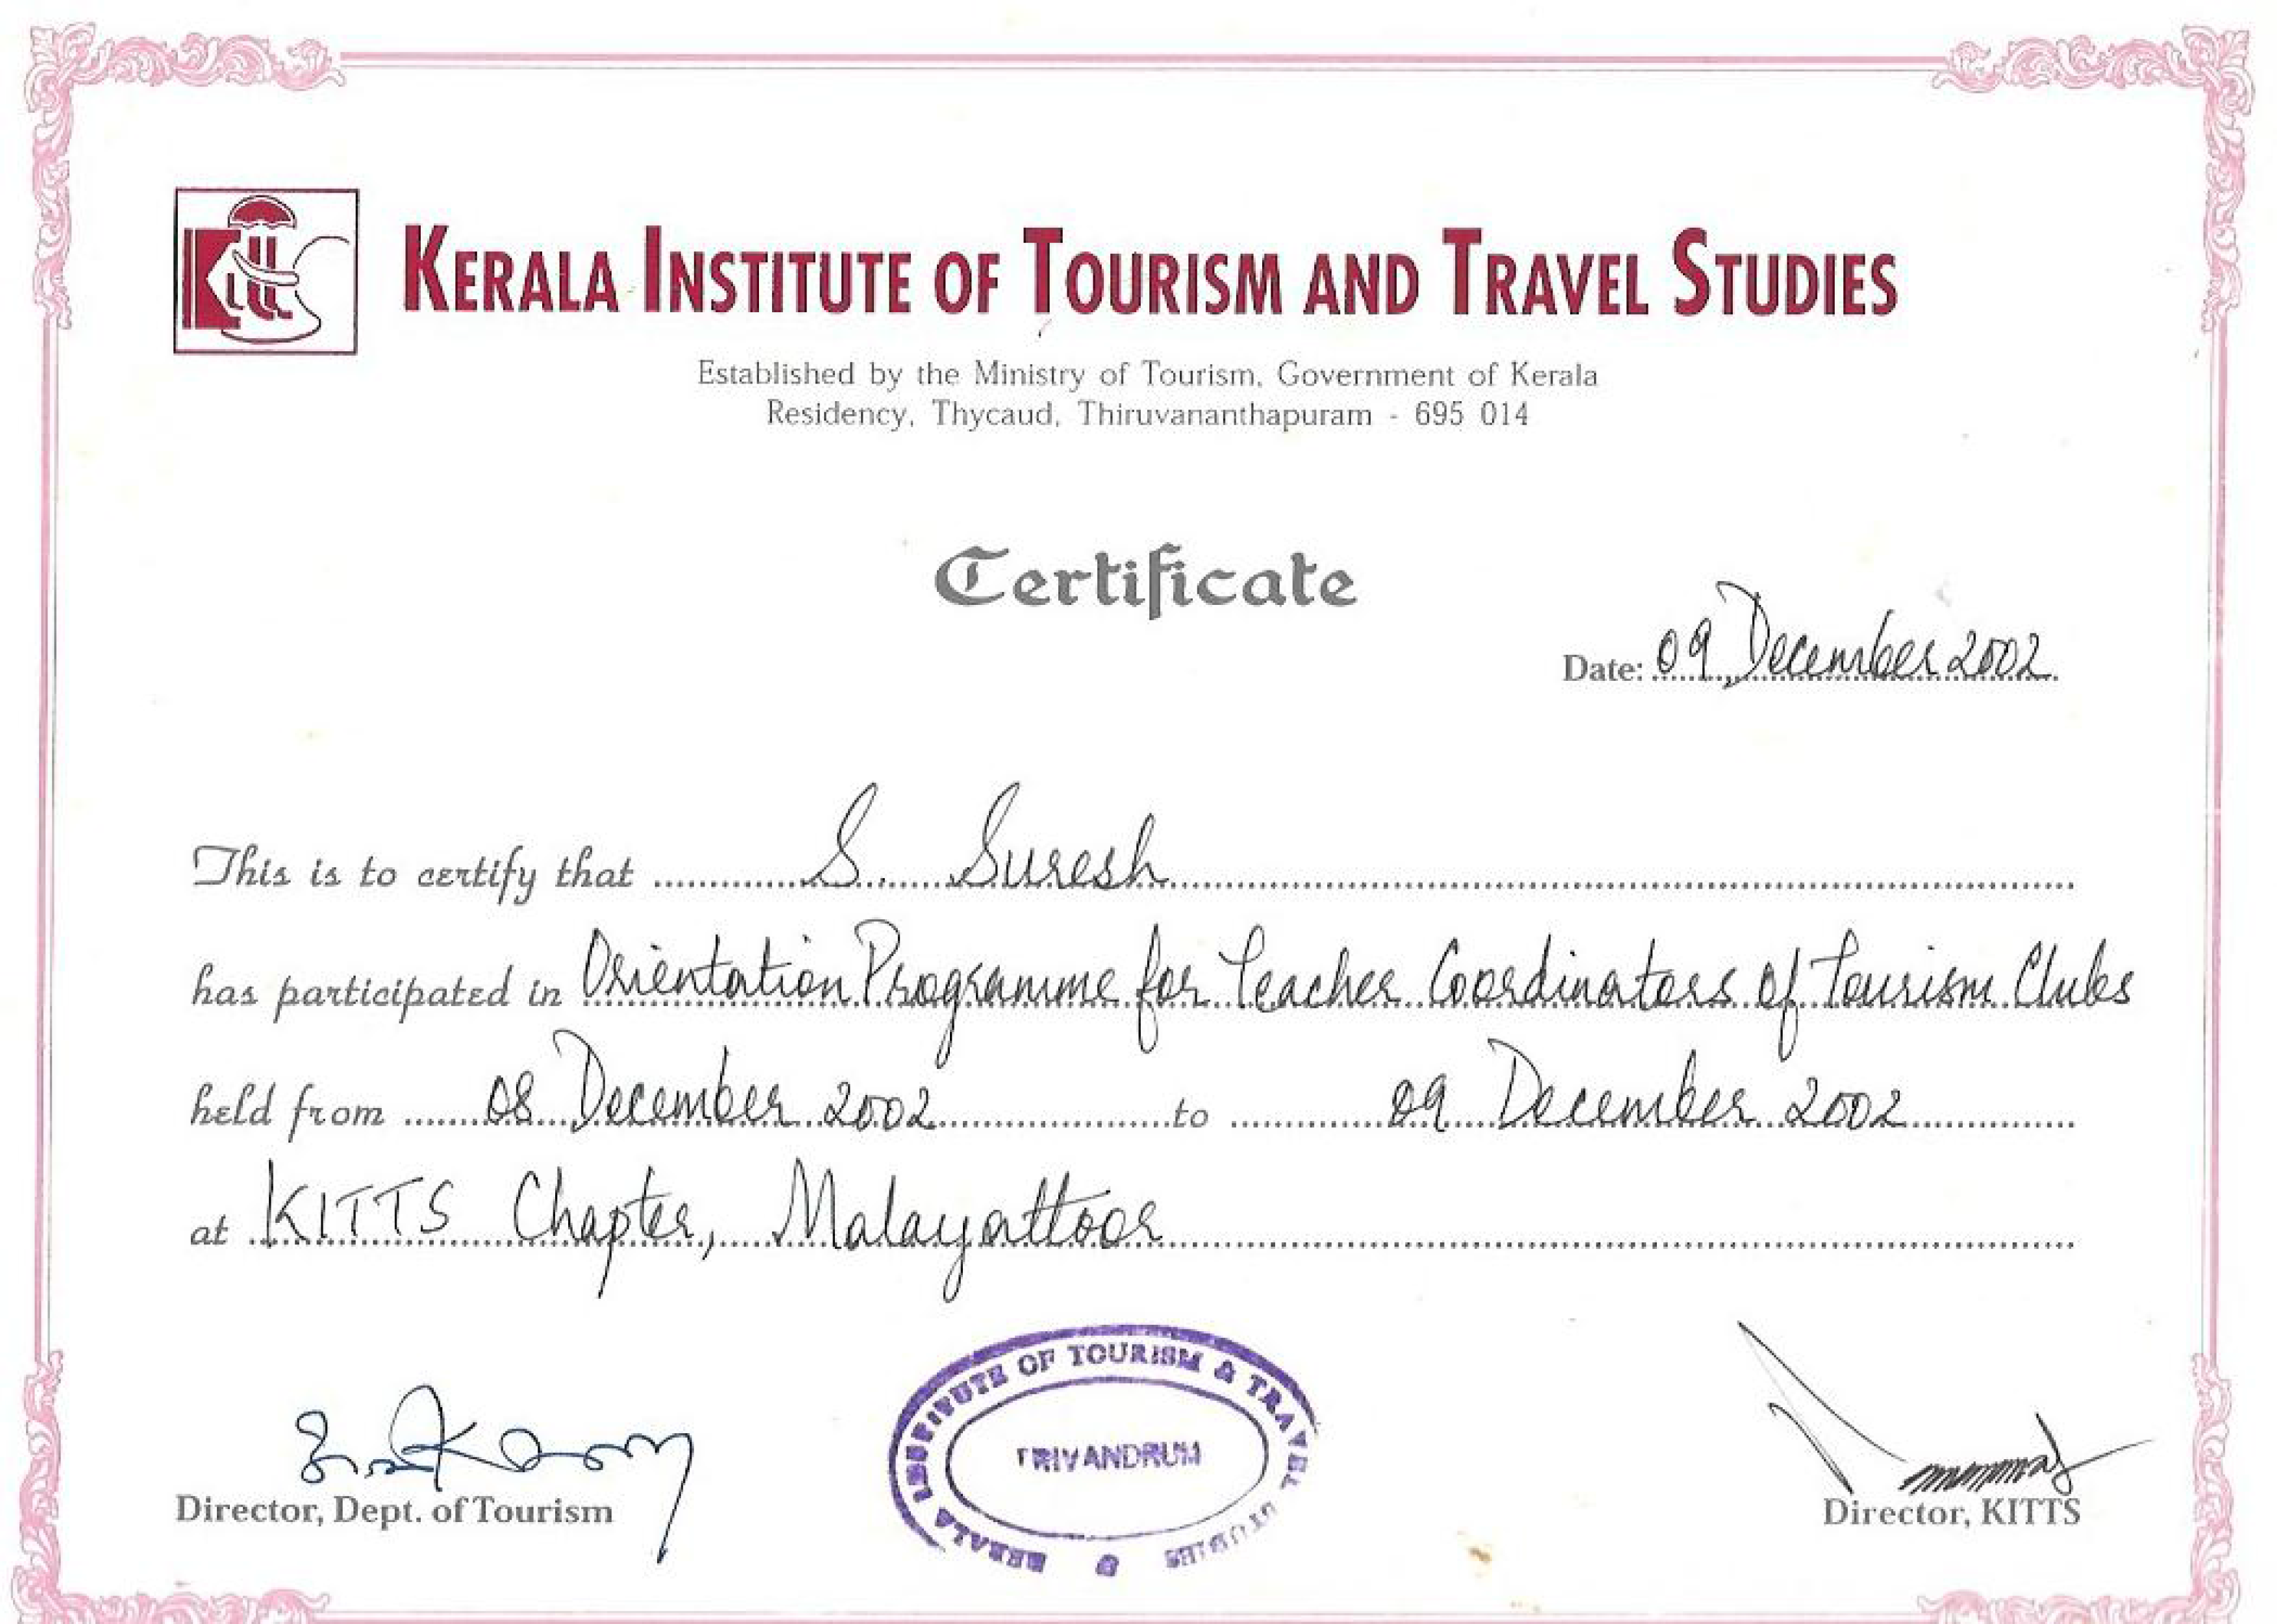 KITTS
KERALA INSTITUTE OF TOURISM AND TRAVEL STUDIES
Established by the Ministry of Tourism, Government of Kerala
Residency, Thycaud, Thiruvananthapuram - 695 014
Certificate
Date: 09 December 2002
This is to certify that S. Suresh
has participated in Orientation Programme for Teacher Coordinators of Tourism Clubs
held from 08 December 2002 to 09 December 2002
at KITTS Chapter, Malayattoor
KERALA INSTITUTE OF TOURISM & TRAVEL STUDIES
TRIVANDRUM
Director, Dept. of Tourism
Director, KITTS